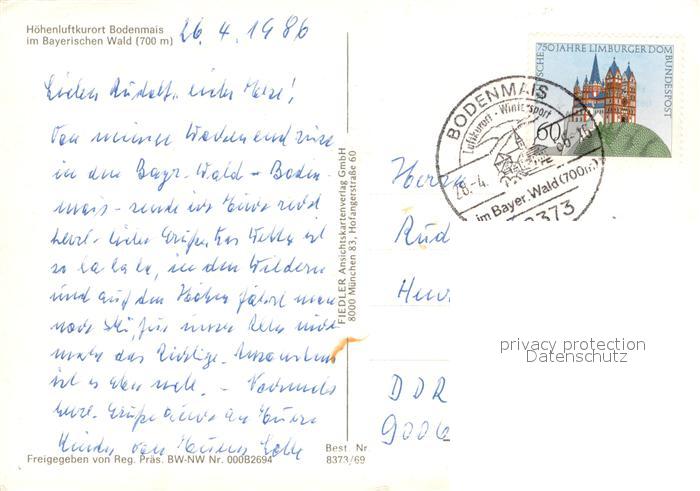 Höhenluftkurort Bodenmais
im Bayerischen Wald (700 m)
26. 4. 1986
Lieber Rudolf, liebe
Von meiner Wochenendreise
in den Bayr. Wald - Boden-
mais - sende ich Euch recht
herzl. liebe Grüße. Das Wetter ist
so la la la, in den Wäldern
und auf den Höhen fährt man
noch Ski, für unser Alter nicht
mehr das Richtige. Ansonsten
ist es eben - Nochmals
herzl. Grüße auch an Eure
Kinder von Eurem
Freigegeben von Reg. Präs. BW-NW Nr. 000B2694
Best. Nr.
8373/69
FIEDLER Ansichtskartenverlag GmbH
8000 München 83, Hofangerstraße 60
DEUTSCHE BUNDESPOST
750 JAHRE LIMBURGER DOM
60
BODENMAIS
Luftkurort - Wintersport
28.-4.
86-16
im Bayer. Wald (700m)
8373
Herrn
Rud
DDR
900
privacy protection
Datenschutz